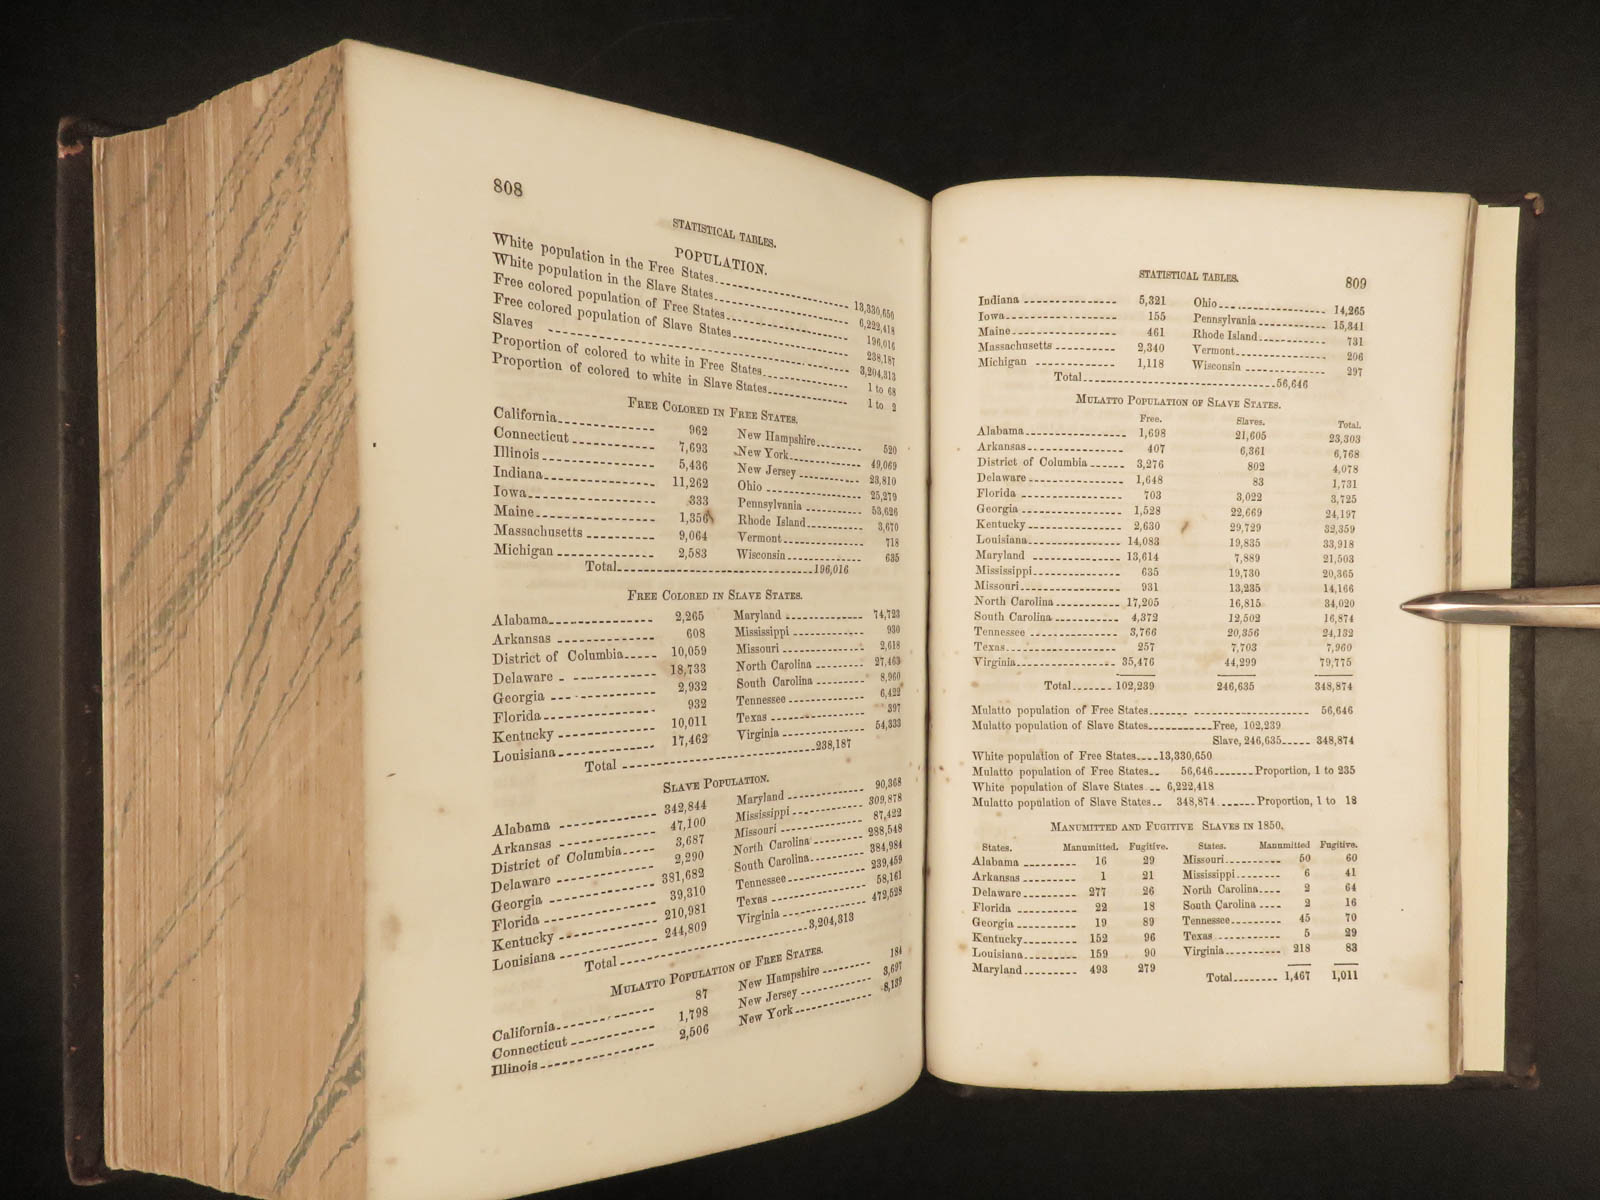 808
STATISTICAL TABLES.
POPULATION.
White population in the Free States 13,330,650
White population in the Slave States 6,222,418
Free colored population of Free States 196,016
Free colored population of Slave States 238,187
Slaves 3,204,313
Proportion of colored to white in Free States 1 to 68
Proportion of colored to white in Slave States 1 to 2
FREE COLORED IN FREE STATES.
California 962 New Hampshire 520
Connecticut 7,693 New York 49,069
Illinois 5,436 New Jersey 23,810
Indiana 11,262 Ohio 25,279
Iowa 333 Pennsylvania 53,626
Maine 1,356 Rhode Island 3,670
Massachusetts 9,064 Vermont 718
Michigan 2,583 Wisconsin 635
Total 196,016
FREE COLORED IN SLAVE STATES.
Alabama 2,265 Maryland 74,723
Arkansas 608 Mississippi 930
District of Columbia 10,059 Missouri 2,618
Delaware 18,733 North Carolina 27,463
Georgia 2,932 South Carolina 8,960
Florida 932 Tennessee 6,422
Kentucky 10,011 Texas 397
Louisiana 17,462 Virginia 54,333
Total 238,187
SLAVE POPULATION.
Alabama 342,844 Maryland 90,368
Arkansas 47,100 Mississippi 309,878
District of Columbia 3,687 Missouri 87,422
Delaware 2,290 North Carolina 288,548
Georgia 381,682 South Carolina 384,984
Florida 39,310 Tennessee 239,459
Kentucky 210,981 Texas 58,161
Louisiana 244,809 Virginia 472,528
Total 3,204,313
MULATTO POPULATION OF FREE STATES.
California 87 New Hampshire 184
Connecticut 1,798 New Jersey 3,697
Illinois 2,506 New York 8,139
STATISTICAL TABLES. 809
Indiana 5,321 Ohio 14,265
Iowa 155 Pennsylvania 15,341
Maine 461 Rhode Island 731
Massachusetts 2,340 Vermont 206
Michigan 1,118 Wisconsin 297
Total 56,646
MULATTO POPULATION OF SLAVE STATES.
Free. Slaves. Total.
Alabama 1,698 21,605 23,303
Arkansas 407 6,361 6,768
District of Columbia 3,276 802 4,078
Delaware 1,648 83 1,731
Florida 703 3,022 3,725
Georgia 1,528 22,669 24,197
Kentucky 2,630 29,729 32,359
Louisiana 14,083 19,835 33,918
Maryland 13,614 7,889 21,503
Mississippi 635 19,730 20,365
Missouri 931 13,235 14,166
North Carolina 17,205 16,815 34,020
South Carolina 4,372 12,502 16,874
Tennessee 3,766 20,356 24,132
Texas 257 7,703 7,960
Virginia 35,476 44,299 79,775
Total 102,239 246,635 348,874
Mulatto population of Free States 56,646
Mulatto population of Slave States Free, 102,239
Slave, 246,635 348,874
White population of Free States 13,330,650
Mulatto population of Free States 56,646 Proportion, 1 to 235
White population of Slave States 6,222,418
Mulatto population of Slave States 348,874 Proportion, 1 to 18
MANUMITTED AND FUGITIVE SLAVES IN 1850.
States. Manumitted. Fugitive. States. Manumitted Fugitive.
Alabama 16 29 Missouri 50 60
Arkansas 1 21 Mississippi 6 41
Delaware 277 26 North Carolina 2 64
Florida 22 18 South Carolina 2 16
Georgia 19 89 Tennessee 45 70
Kentucky 152 96 Texas 5 29
Louisiana 159 90 Virginia 218 83
Maryland 493 279
Total 1,467 1,011